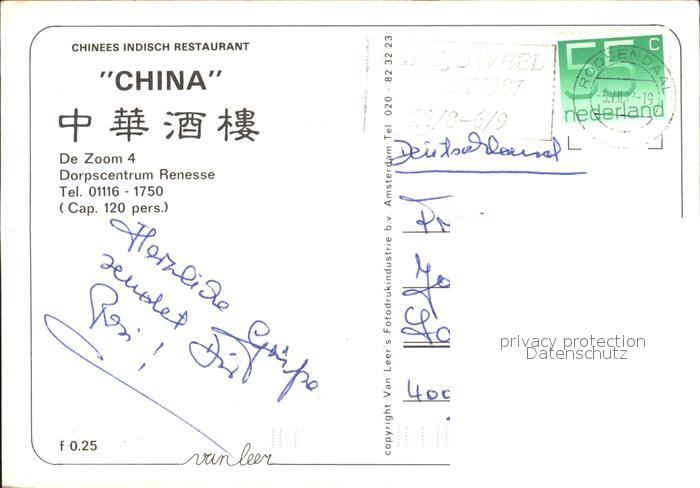 CHINEES INDISCH RESTAURANT
"CHINA"
中華酒樓
De Zoom 4
Dorpscentrum Renesse
Tel. 01116 - 1750
( Cap. 120 pers.)
Herzliche Grüße
sendet Dir
Rosi !
f 0.25
van leer
copyright Van Leer's Fotodrukindustrie b.v. Amsterdam Tel 020 - 82 32 23
22/8-6/9
55 c
nederland
ROOSENDAAL
Deutschland
400
privacy protection
Datenschutz